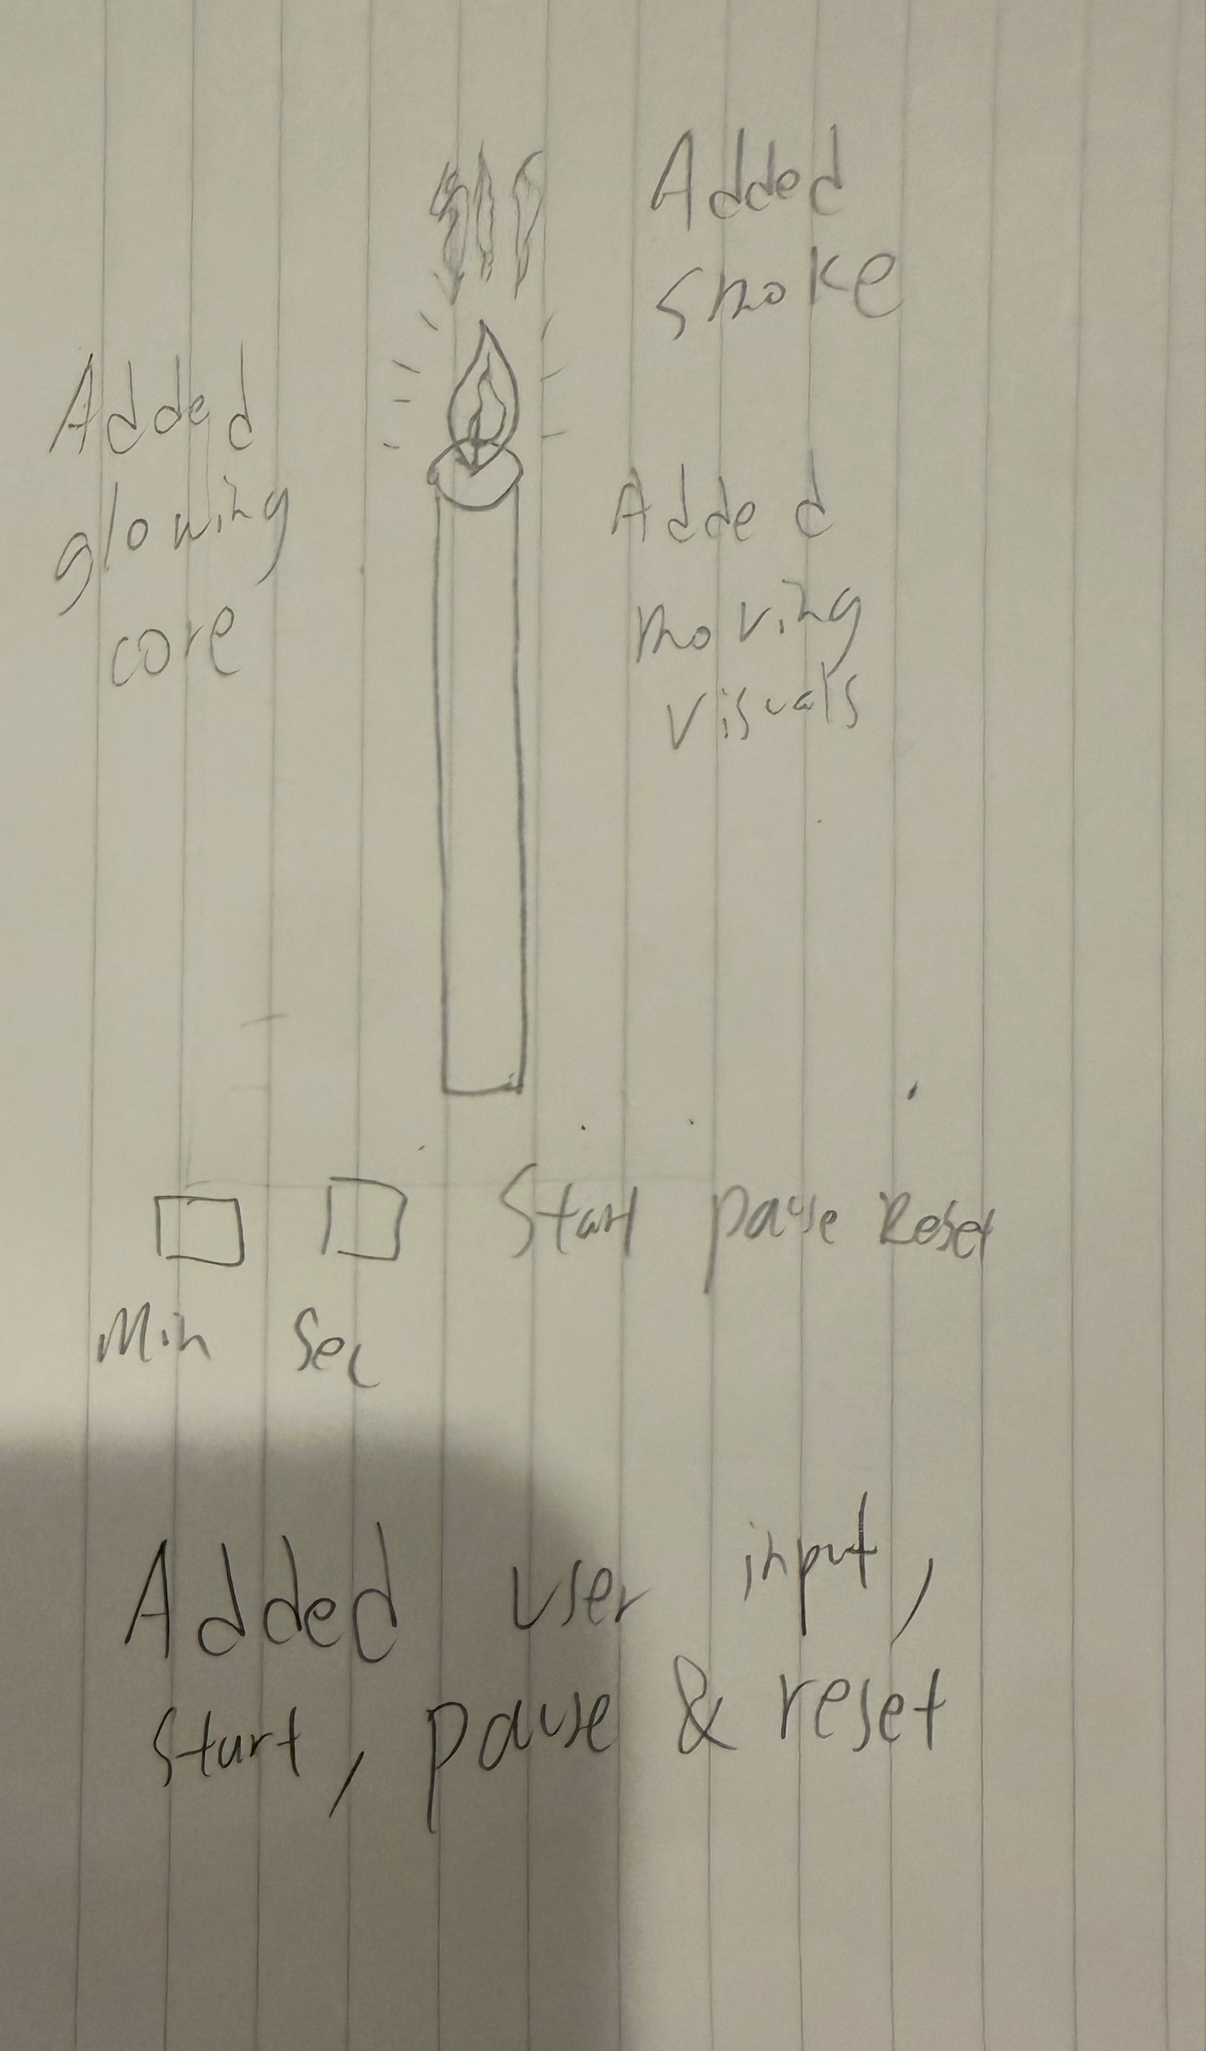 Added
smoke
Added
glowing
core
Added
moving
visuals
Start pause Reset
Min Sec
Added user input,
start, pause & reset